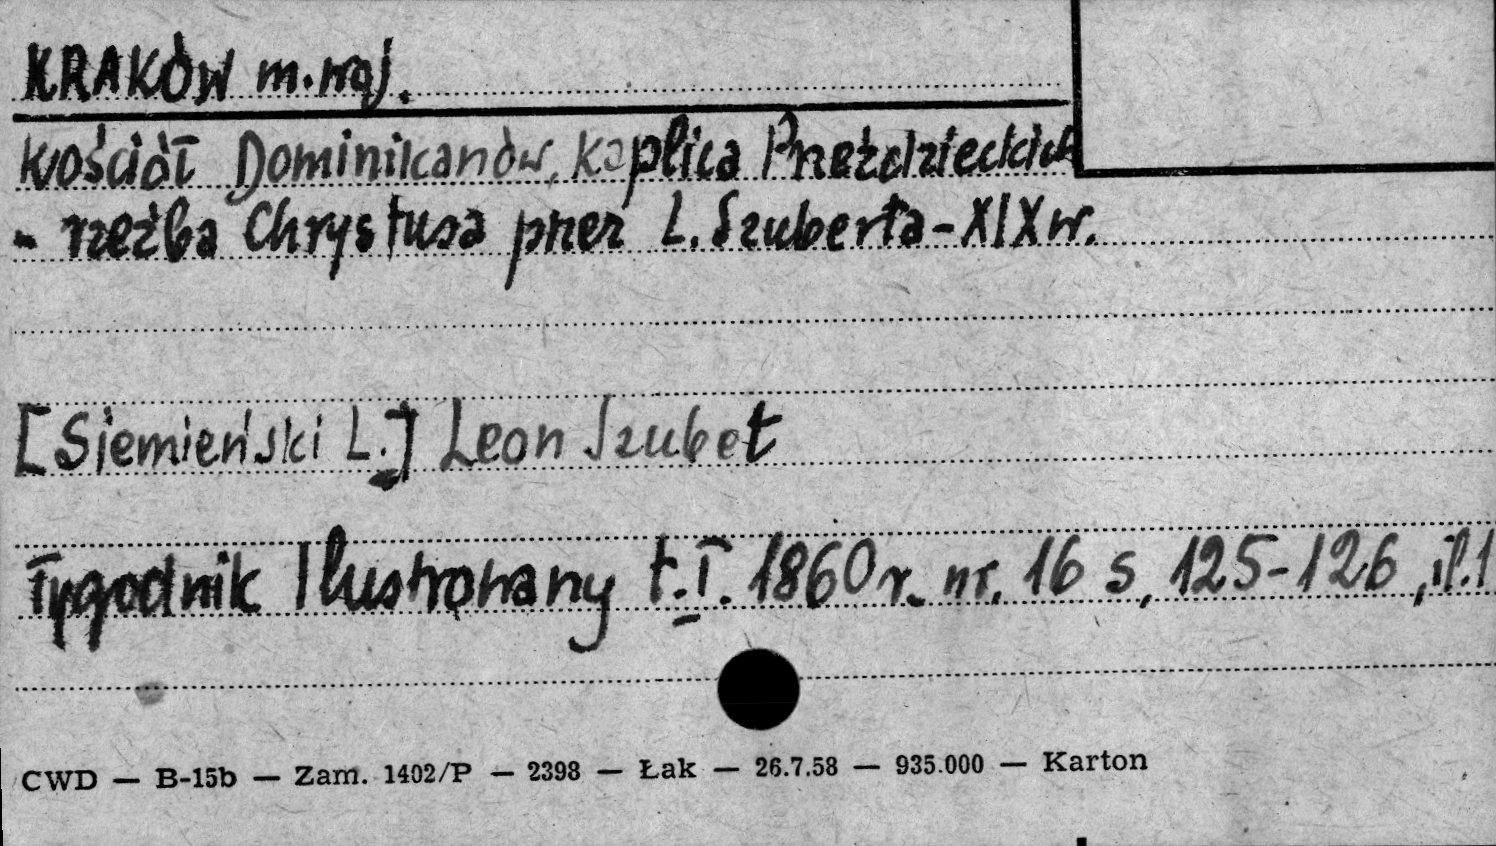 KRAKÓW m. woj.
kościół Dominikanów, kaplica Przeździeckich
- rzeźba Chrystusa przez L. Szuberta - XIX w.
[Siemieński L.] Leon Szubet
Tygodnik Ilustrowany t. I. 1860 r. nr. 16 s. 125-126, il. 1
CWD — B-15b — Zam. 1402/P — 2398 — Łak — 26.7.58 — 935.000 — Karton